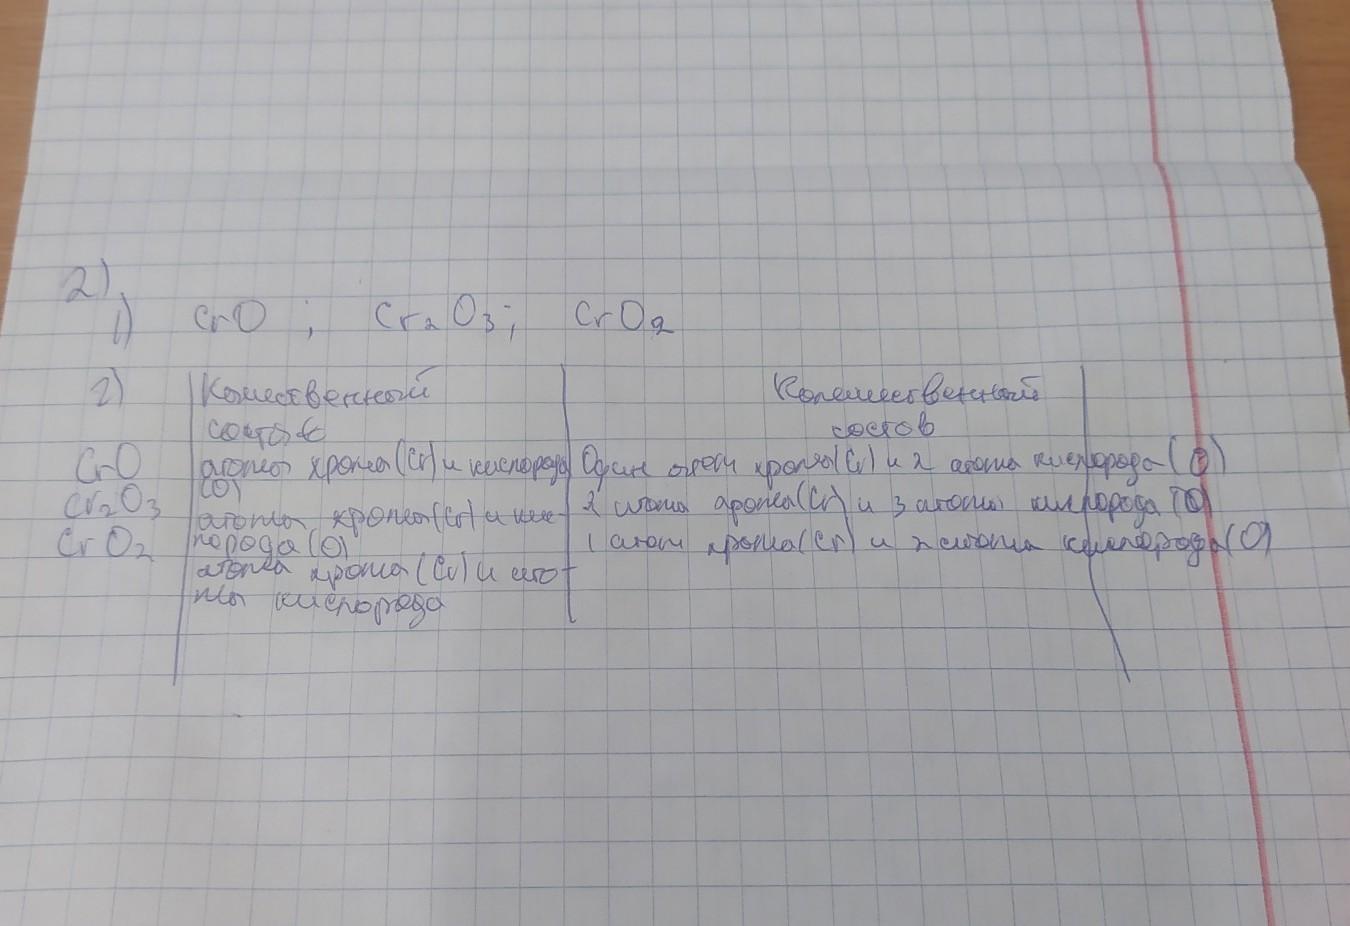 2)
1) CrO ; Cr₂O₃; CrO₂
2) Качественный Количественный
состав состов
CrO атомы хрома (Cr) и кислорода Один атом хрома (Cr) и 2 атома кислорода (O)
(O)
Cr₂O₃ атомы хрома (Cr) и кис- 2 атома хрома (Cr) и 3 атома кислорода (O)
CrO₂ лорода (O) 1 атом хрома (Cr) и 2 атома кислорода (O)
атома хрома (Cr) и ато-
мы кислорода